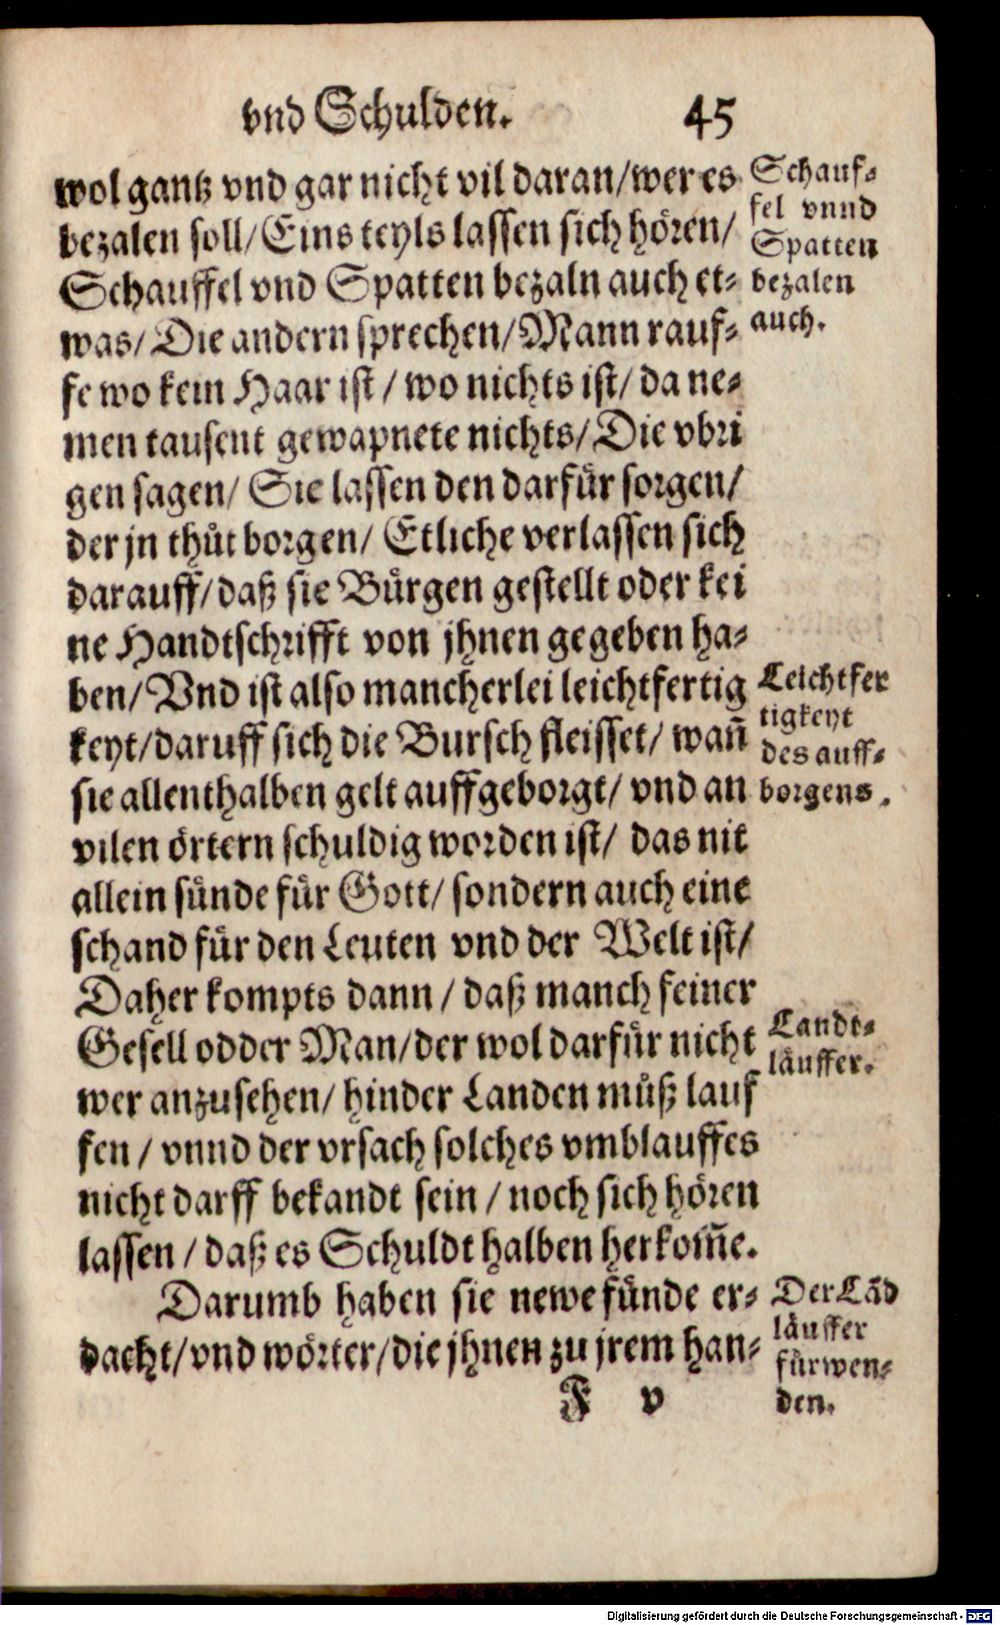 vnd Schulden. 45
wol gantz vnd gar nicht vil daran/wer es
bezalen soll/Eins teyls lassen sich hören/
Schauffel vnd Spatten bezaln auch et⸗
was/Die andern sprechen/Mann rauf⸗
fe wo kein Haar ist/ wo nichts ist/ da ne⸗
men tausent gewapnete nichts/Die vbri
gen sagen/ Sie lassen den darfür sorgen/
der jn thůt borgen/ Etliche verlassen sich
darauff/daß sie Bürgen gestellt oder kei
ne Handtschrifft von jhnen gegeben ha⸗
ben/Vnd ist also mancherlei leichtfertig
keyt/daruff sich die Bursch fleisset/ wañ
sie allenthalben gelt auffgeborgt/ vnd an
vilen örtern schuldig worden ist/ das nit
allein sünde für Gott/ sondern auch eine
schand für den Leuten vnd der Welt ist/
Daher kompts dann/ daß manch feiner
Gesell odder Man/der wol darfür nicht
wer anzusehen/ hinder Landen můß lauf
fen/ vnnd der vrsach solches vmblauffes
nicht darff bekandt sein/ noch sich hören
lassen/ daß es Schuldt halben herkom̃e.
Darumb haben sie newe fünde er⸗
dacht/vnd wörter/die jhnen zu jrem han⸗
F v
Schauf⸗
fel vnnd
Spatten
bezalen
auch.
Leichtfer
tigkeyt
des auff⸗
borgens.
Landt⸗
läuffer.
Der Lãd
läuffer
fürwen⸗
den.
Digitalisierung gefördert durch die Deutsche Forschungsgemeinschaft - DFG